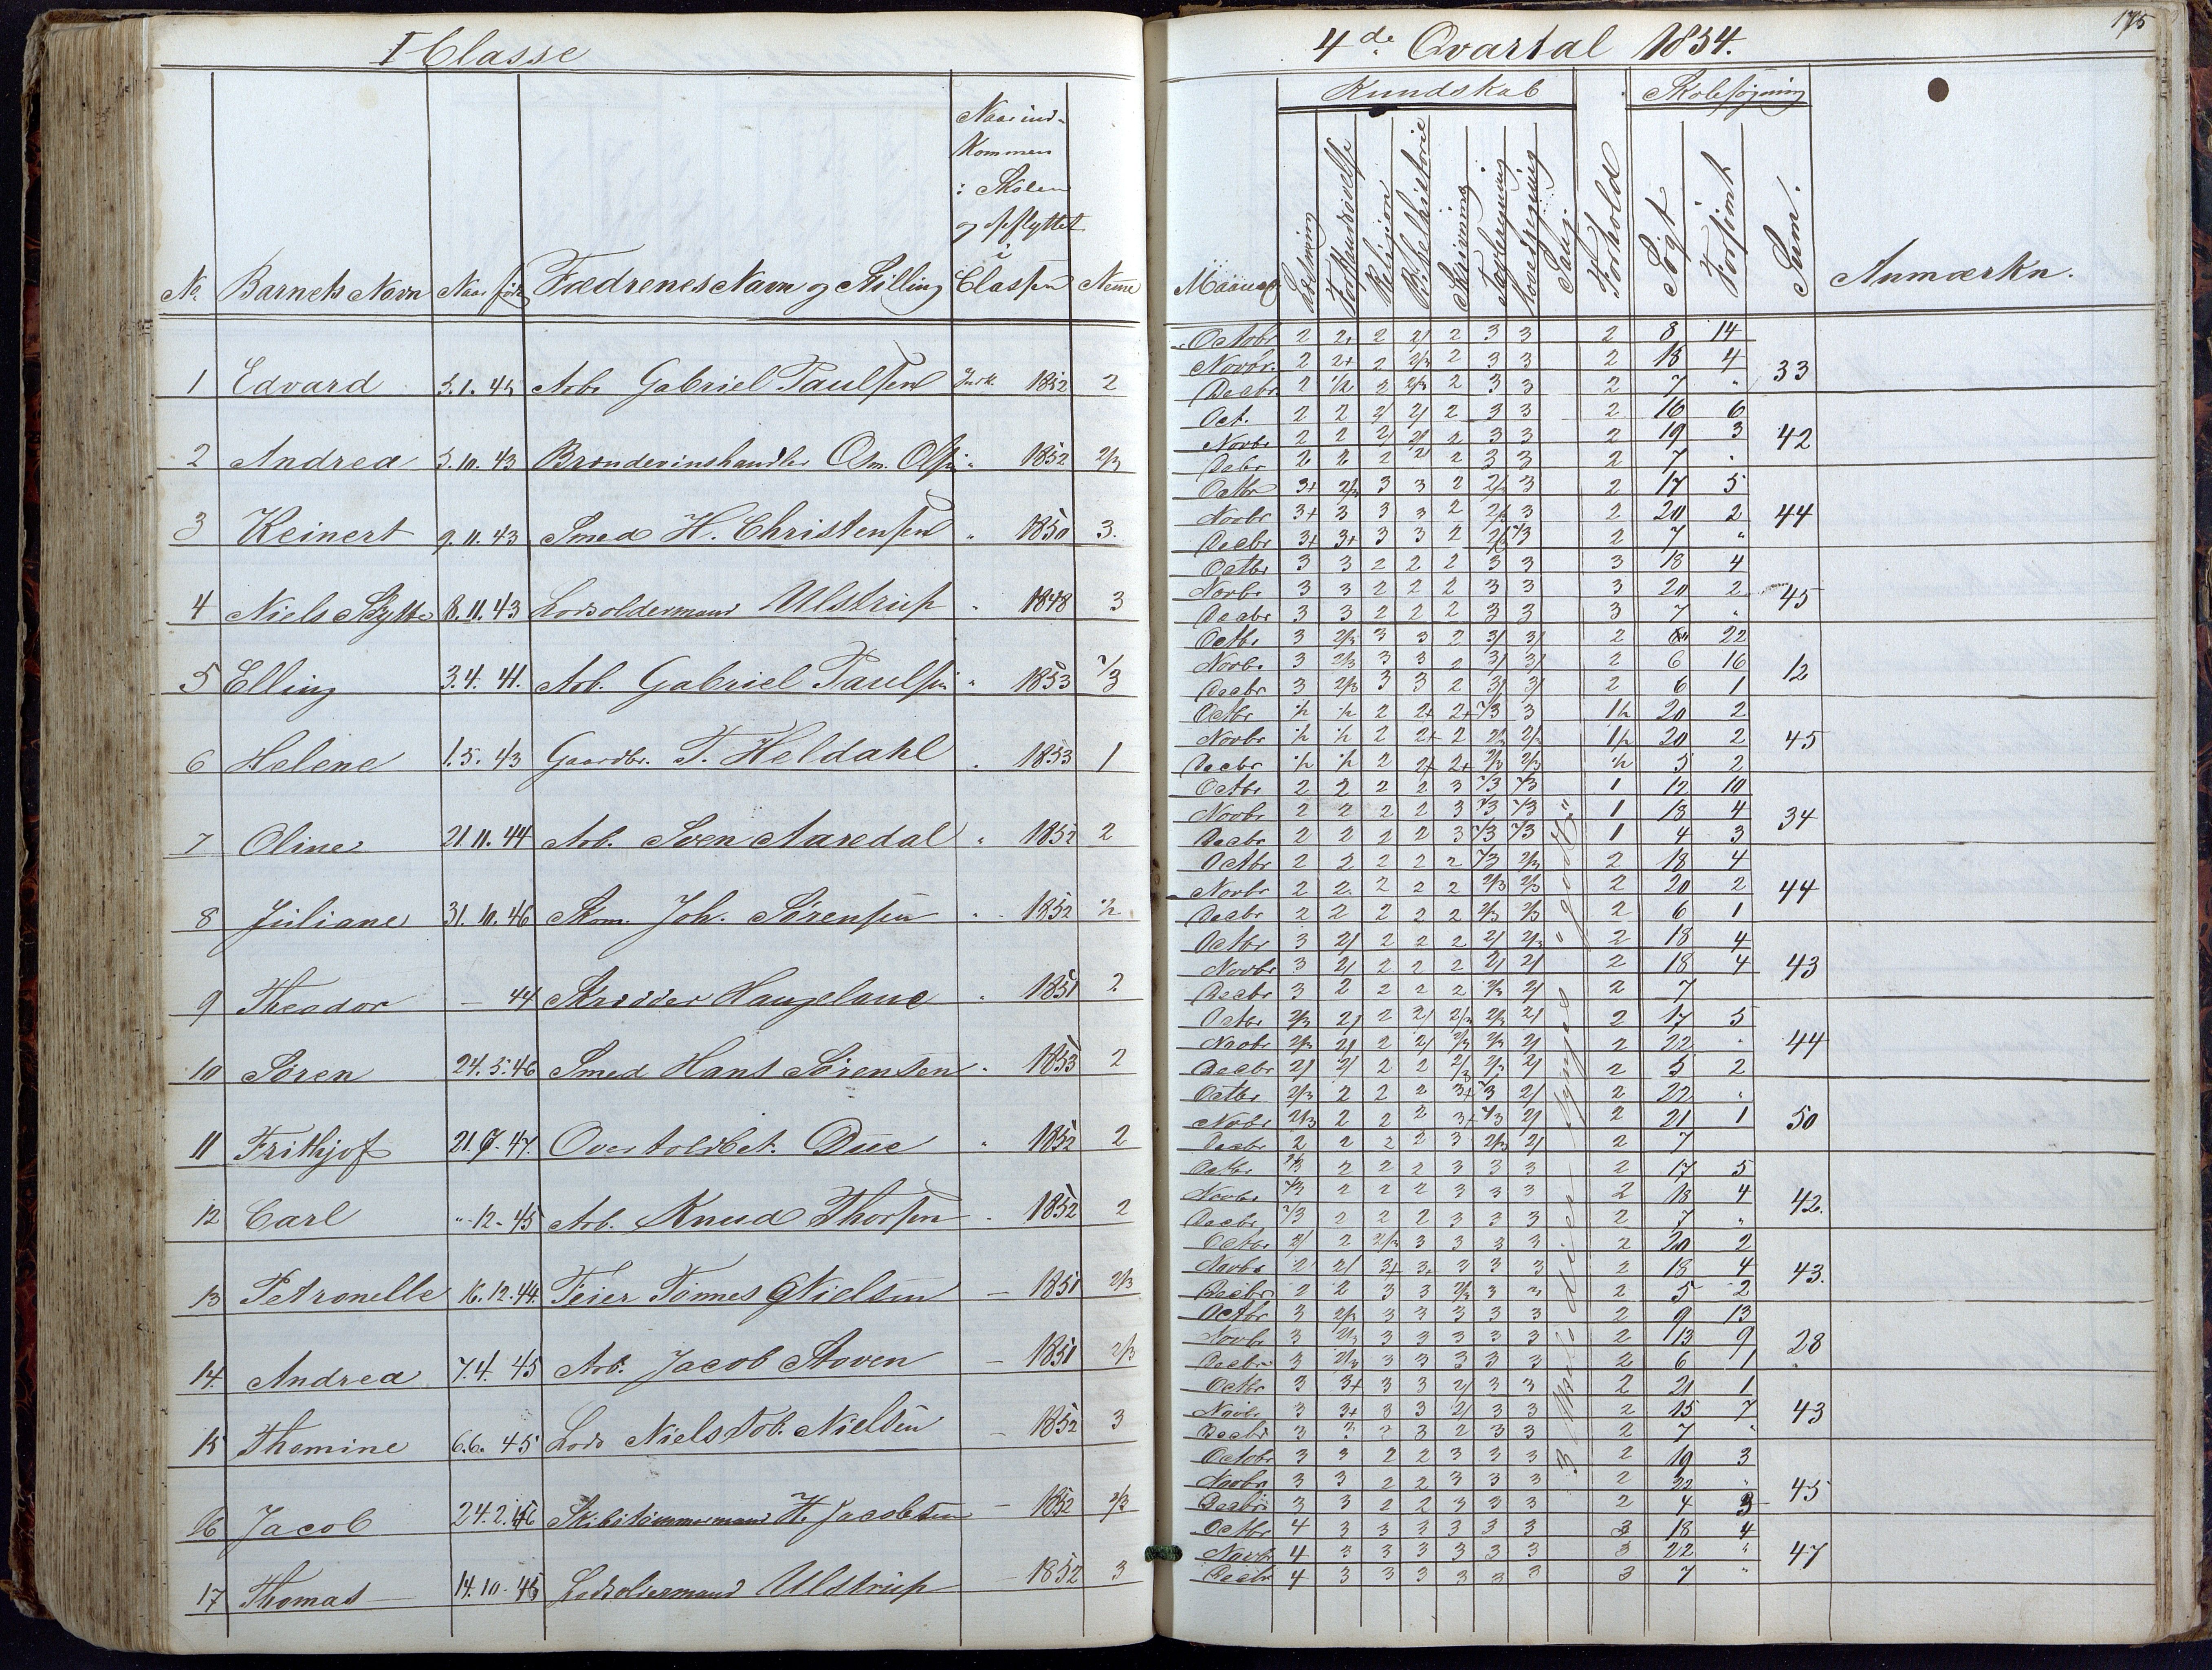 I Classe
No. Barnets Navn Naar født Fædrenes Navn og Stilling Naar ind-
kommen
i Skolen
og opflyttet
i
Classen Nemme
1 Edvard 5.1.45 Arb. Gabriel Paulsen Indk. 1852 2
2 Andrea 3.10.43 Brændevinshandler Osm. Olsen " 1852 2/3
3 Reinert 9.11.43 Smed H. Christensen " 1850 3.
4 Niels Skytte 8.11.43 Lodsoldermand Ulstrup " 1848 3
5 Elling 3.4.41. Arb. Gabriel Paulsen " 1853 2/3
6 Helene 1.5.43 Gaardbr. T. Heldahl " 1853 1
7 Oline 21.11.44 Arb. Sven Aaredal " 1852 2
8 Juliane 31.10.46 Skom. Joh. Sørensen " 1852 1/2
9 Theodor – 44 Skrædder Haugeland " 1851 2
10 Søren 24.5.46 Smed Hans Sørensen " 1853 2
11 Frithjof Overtoldbet. Due " 1852 2
12 Carl "-12-45 Arb. Knud Thorsen " 1852 2
13 Petronelle 16.12.44. Feier Tønnes Nielsen – 1851 2/3
14. Andrea 7.4.45 Arb. Jacob Stoven – 1851 2/3
15 Thomine 6.6.45 Lods Niels Tob. Nielsen – 1852 3
16 Jacob 24.2.46 Skibstømmermand H. Jacobsen – 1852 2/3
17 Thomas 14.10.45 Lodsoldermand Ulstrup – 1852 3
175
4de Qvartal 1854.
Kundskab Skolesøgning
Maaned Læsning Forstandsøvelse Religion Bibelhistorie Skrivning Tavleregning Hovedregning Sang Forhold Søgt Forsømt Sum. Anmærkn.
Octobr 2 2+ 2 2/ 2 3 3 2 8 14
Novbr. 2 2+ 2 2/3 2 3 3 2 18 4 33
Decbr. 2 1/2 2 2/3 2 3 3 2 7 "
Oct. 2 2 2/ 2/ 2 3 3 2 16 6
Novbr 2 2 2/ 2/ 2 3 3 2 19 3 42
Debr 2 2 2 2/ 2 3 3 2 7 "
Octbr 3+ 2/3 3 3 2 2/3 3 2 17 5
Novbr 3+ 3 3 3 2 2/3 3 2 20 2 44
Decbr 3+ 3+ 3 3 2 2/3 2/3 2 7 "
Octbr 3 3 2 2 2 3 3 3 18 4
Novbr 3 3 2 2 2 3 3 3 20 2 45
Decbr 3 3 2 2 2 3 3 3 7 "
Octbr 3 2/3 3 3 2 3/ 3/ 2 22
Novbr 3 2/3 3 3 2 3/ 3/ 2 6 16 12
Decbr 3 2/3 3 3 2 3/ 3/ 2 6 1
Octbr 1/2 1/2 2 2+ 2+ 2/3 3 1/2 20 2
Novbr 1/2 1/2 2 2+ 2 2/3 2/3 1/2 20 2 45
Decbr 1/2 1/2 2 2+ 2+ 2/3 2/3 1/2 5 2
Octbr 2 2 2 2 3 2/3 2/3 1 12 10
Novbr 2 2 2 2 3 2/3 2/3 1 18 4 34
Decbr 2 2 2 2 3 2/3 2/3 1 4 3
Octbr 2 2 2 2 2 2/3 2/3 2 18 4
Novbr 2 2 2 2 2 2/3 2/3 2 20 2 44
Decbr 2 2 2 2 2 2/3 2/3 2 6 1
Octbr 3 2/ 2 2 2 2/ 2/3 2 18 4
Novbr 3 2/ 2 2 2 2/ 2/ 2 18 4 43
Decbr 3 2 2 2 2 2/3 2/ 2 7
Octbr 2/3 2/ 2 2/ 2/3 2/3 2/ 2 17 5
Novbr 2/3 2/ 2 2/ 2/3 2/3 2/ 2 22 " 44
Decbr 2/ 2/ 2 2 2/3 2/3 2/ 2 5 2
Octbr 2/3 2 2 2 3+ 2/3 2/ 2 22 "
Nobr 2/3 2 2 2 3+ 2/3 2/ 2 21 1 50
Decbr 2 2 2 2 3 2/3 2/ 2 7
Octbr 2/3 2 2 2 3 3 3 2 17 5
Novbr 2/3 2 2 2 3 3 3 2 18 4 42.
Decbr 2/3 2 2 2 3 3 3 2 7 "
Octbr 2/ 2 2/3 3 3 3 3 2 20 2
Novbr 2 2/ 3+ 3+ 3 3 3 2 18 4 43.
Decbr 2 2 3 3 2/3 3 3 2 5 2
Octbr 3 2/3 3 3 3 3 3 2 9 13
Novbr 3 2/3 3 3 3 3 3 2 13 9 28
Decbr 3 2/3 3 3 3 3 3 2 6 1
Octbr 3 3+ 3 3 2/ 3 3 2 21 1
Novbr 3 3+ 3 3 2/ 3 3 2 15 7 43
Decbr 3 3 3 3 2 3 3 2 7 "
Octobr 3 3 2 2 3 3 3 2 19 3
Novbr 3 3 2 2 3 3 3 2 22 " 45
Decbr 3 3 2 2 3 3 3 2 4 3
Octbr 4 3 3 3 3 3 3 3 18 4
Novbr 4 3 3 3 3 3 3 3 22 " 47
Decbr 4 3 3 3 3 3 3 3 7 "
3 Melodier synges "godt."